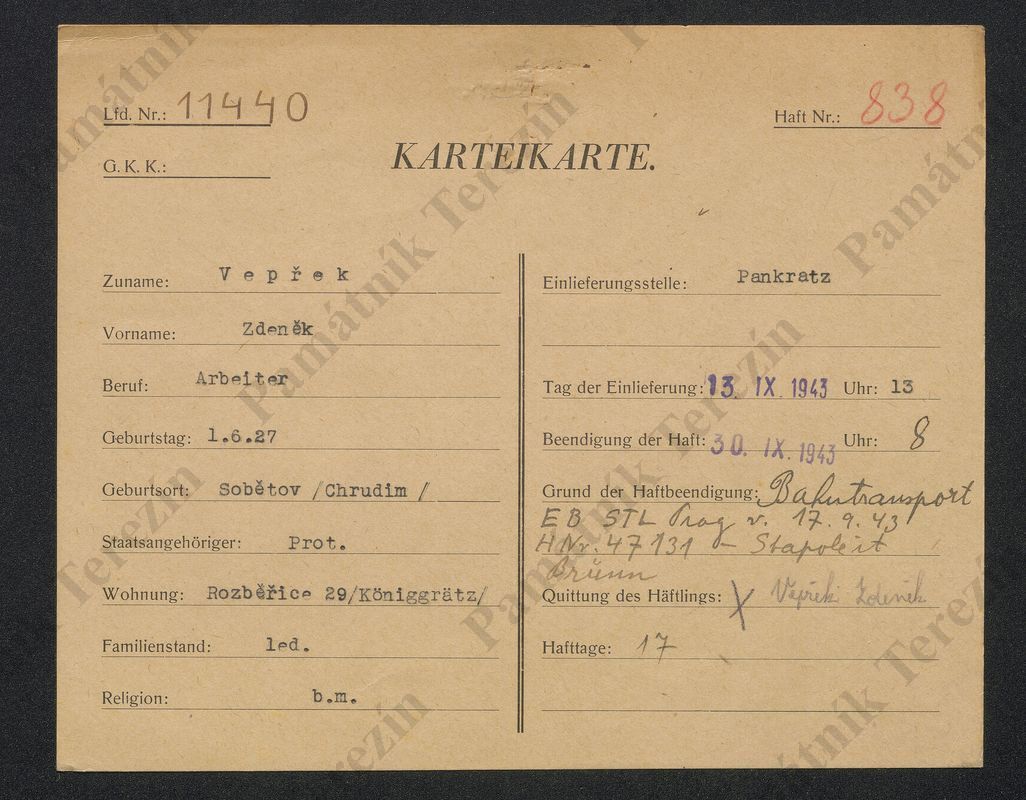 Lfd. Nr.: 11440
Haft Nr.: 838
G. K. K.:
KARTEIKARTE.
Zuname: Vepřek
Vorname: Zdeněk
Beruf: Arbeiter
Geburtstag: 1.6.27
Geburtsort: Sobětov /Chrudim /
Staatsangehöriger: Prot.
Wohnung: Rozběřice 29/Königgrätz/
Familienstand: led.
Religion: b.m.
Einlieferungsstelle: Pankratz
Tag der Einlieferung: 13. IX. 1943 Uhr: 13
Beendigung der Haft: 30. IX. 1943 Uhr: 8
Grund der Haftbeendigung: Bahntransport
EB STL Prag v. 17.9.43
HNr. 47131 – Stapoleit
Brünn
Quittung des Häftlings: X Vepřek Zdeněk
Hafttage: 17
Památník Terezín